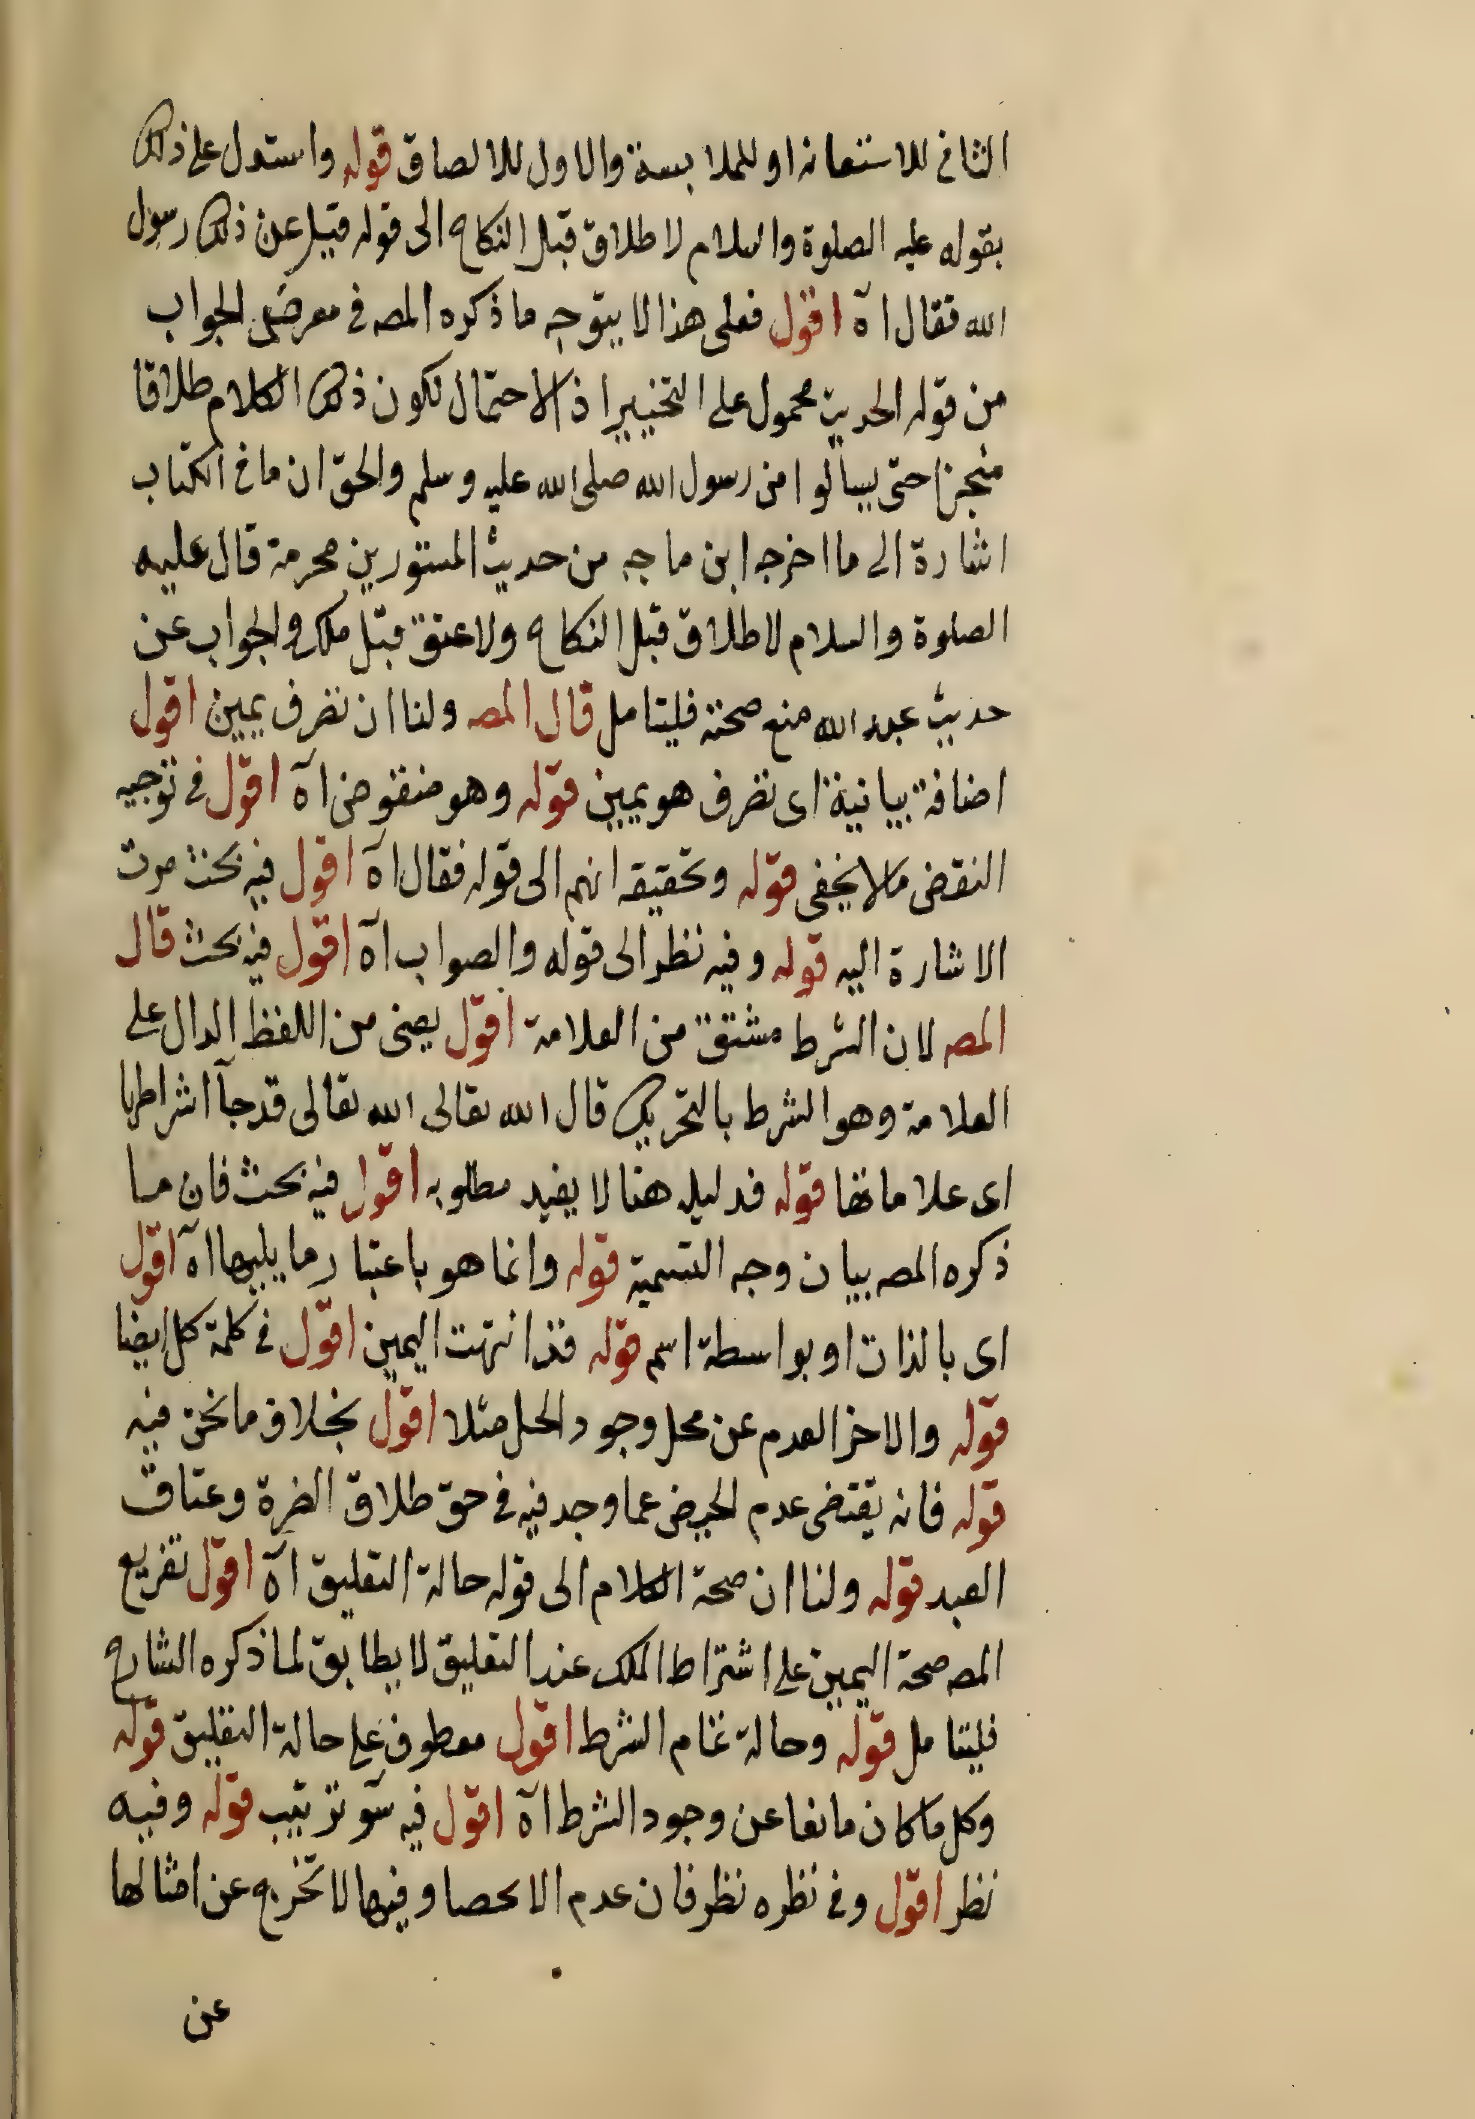 الثانى للاستعانة او للملابسة والاول للالصاق قوله واستدل على ذلك
بقوله عليه الصلوة والسلام لا طلاق قبل النكاح الى قوله قيل عن ذلك رسول
الله فقال اه اقول فعلى هذا لا يتوجه ما ذكره المصه فى معرض الجواب
من قوله الحديث محمول على التخيير اذ لا احتمال لكون ذلك الكلام طلاقا
منجزا حتى يسألوا من رسول الله صلى الله عليه وسلم والحق ان ما فى الكتاب
اشارة الى ما اخرجه ابن ماجه من حديث المستورين محرمة قال عليه
الصلوة والسلام لا طلاق قبل النكاح ولا عتق قبل ملك والجواب عن
حديث عبد الله منع صحته فليتامل قال المصه ولنا ان تصرف يمين اقول
اضافة بيانية اى تصرف هو يمين قوله وهو منقوض اه اقول فى توجيه
النقض ما لا يخفى قوله وتحقيقه انهم الى قوله فقال اه اقول فيه بحث مرت
الاشارة اليه قوله وفيه نظر الى قوله والصواب اه اقول فيه بحث قال
المصه لان الشرط مشتق من العلامة اقول يعنى من اللفظ الدال على
العلامة وهو الشرط بالتحريك قال الله تعالى الله تعالى قد جآ اشراطها
اى علاماتها قوله فدليله هنا لا يفيد مطلوبه اقول فيه بحث فان ما
ذكره المصه بيان وجه التسمية قوله وانما هو باعتبار ما يليها اه اقول
اى بالذات او بواسطة اسم قوله فذا انتهت اليمين اقول فى كلمة كل ايضا
قوله والاخر العدم عن محل وجود الحل مثلا اقول بخلاف ما نحن فيه
قوله فانه يقتضى عدم الحيض عما وجد فيه فى حق طلاق الضرة وعتاق
العبد قوله ولنا ان صحة الكلام الى قوله حالة التعليق اه اقول تفريع
المصه صحة اليمين على اشتراط الملك عند التعليق لا يطابق لما ذكره الشارح
فليتامل قوله وحالة تمام الشرط اقول معطوف على حالة التعليق قوله
وكل ما كان مانعا عن وجود الشرط اه اقول فيه سؤ ترتيب قوله وفيه
نظر اقول وفى نظره نظر فان عدم الانحصار فيها لا تخرج عن امثالها
عن